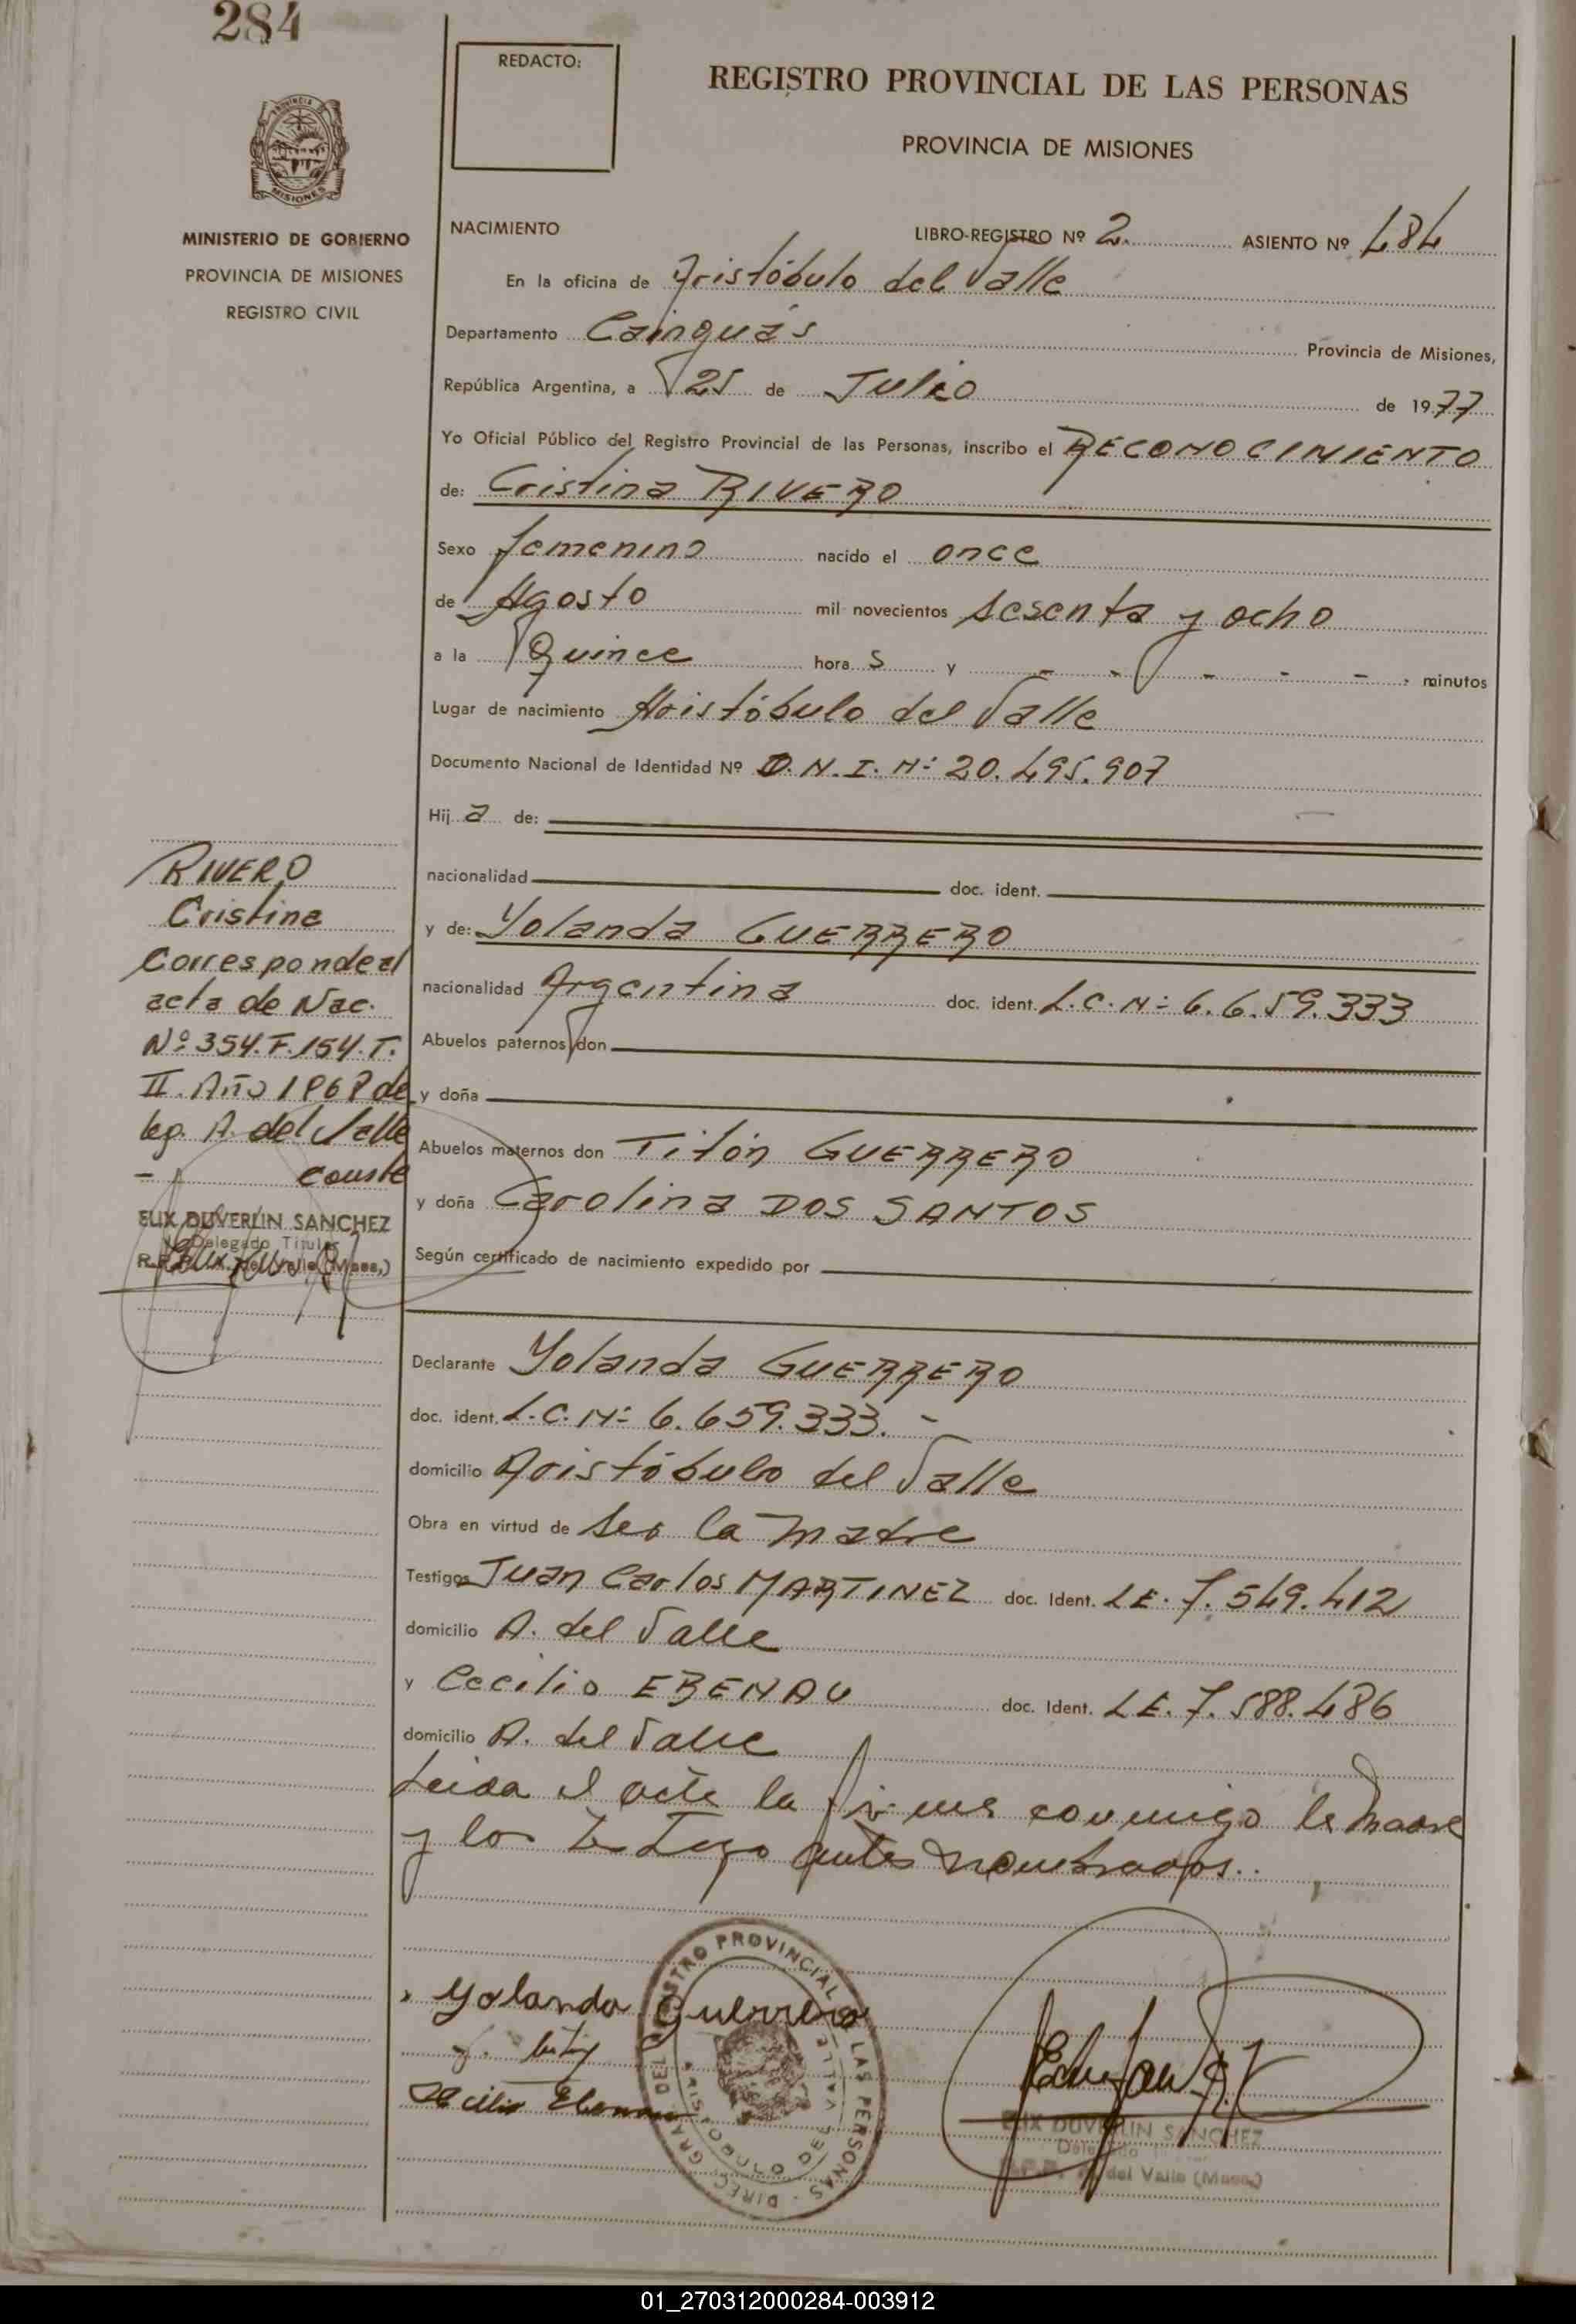 284
REDACTO:
REGISTRO PROVINCIAL DE LAS PERSONAS
PROVINCIA DE MISIONES
MISIONES
MINISTERIO DE GOBIERNO
PROVINCIA DE MISIONES
REGISTRO CIVIL
NACIMIENTO LIBRO-REGISTRO Nº 2. ASIENTO Nº 484
En la oficina de Aristóbulo del Valle
Departamento Cainguás Provincia de Misiones,
República Argentina, a 25 de Julio de 1977
Yo Oficial Público del Registro Provincial de las Personas, inscribo el RECONOCIMIENTO
de: Cristina RIVERO
Sexo femenino nacido el once
de Agosto mil novecientos sesenta y ocho
a la Quince hora s y - - - - - - minutos
Lugar de nacimiento Aristóbulo del Valle
Documento Nacional de Identidad Nº D.N.I. Nº 20.495.907
Hij a de:
nacionalidad doc. ident.
y de: Yolanda GUERRERO
nacionalidad Argentina doc. ident. L.C. Nº 6.659.333
Abuelos paternos don
y doña
Abuelos maternos don Titón GUERRERO
y doña Carolina DOS SANTOS
Según certificado de nacimiento expedido por
RIVERO
Cristina
Corresponde al
acta de Nac.
Nº 354. F. 154. T.
II. Año 1968 de
A. del Valle
- conste
ELIX DUVERLIN SANCHEZ
Delegado Titular
R.P.P. A. del Valle (Mnes.)
Declarante Yolanda GUERRERO
doc. ident. L.C. Nº 6.659.333. -
domicilio Aristóbulo del Valle
Obra en virtud de ser la madre
Testigos Juan Carlos MARTINEZ doc. Ident. LE. 7.549.412
domicilio A. del Valle
y Cecilio EBENAU doc. Ident. LE. 7.588.486
domicilio A. del Valle
Leida el acta la firma conmigo la madre
y los testigos antes nombrados..
Yolanda Guerrero
Cecilio Ebenau
DIREC. GRAL. DEL REGISTRO PROVINCIAL DE LAS PERSONAS
ARISTOBULO DEL VALLE
ELIX DUVERLIN SANCHEZ
Delegado
R.P.P. A. del Valle (Mnes.)
01_270312000284-003912